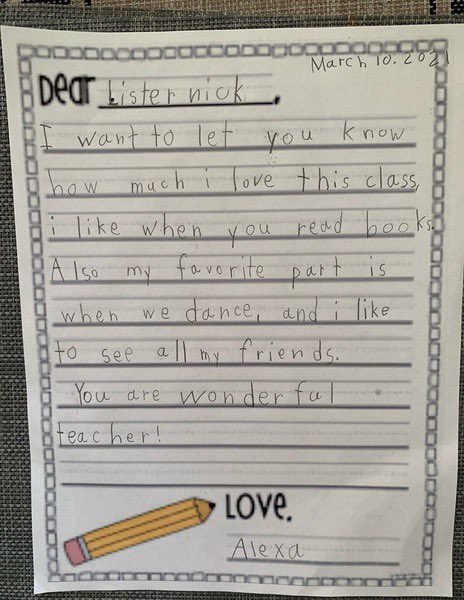 March 10. 2021
Dear Lister nick,
I want to let you know
how much i love this class,
i like when you read books.
Also my favorite part is
when we dance, and i like
to see all my friends.
You are wonderful
teacher!
LOVE,
Alexa